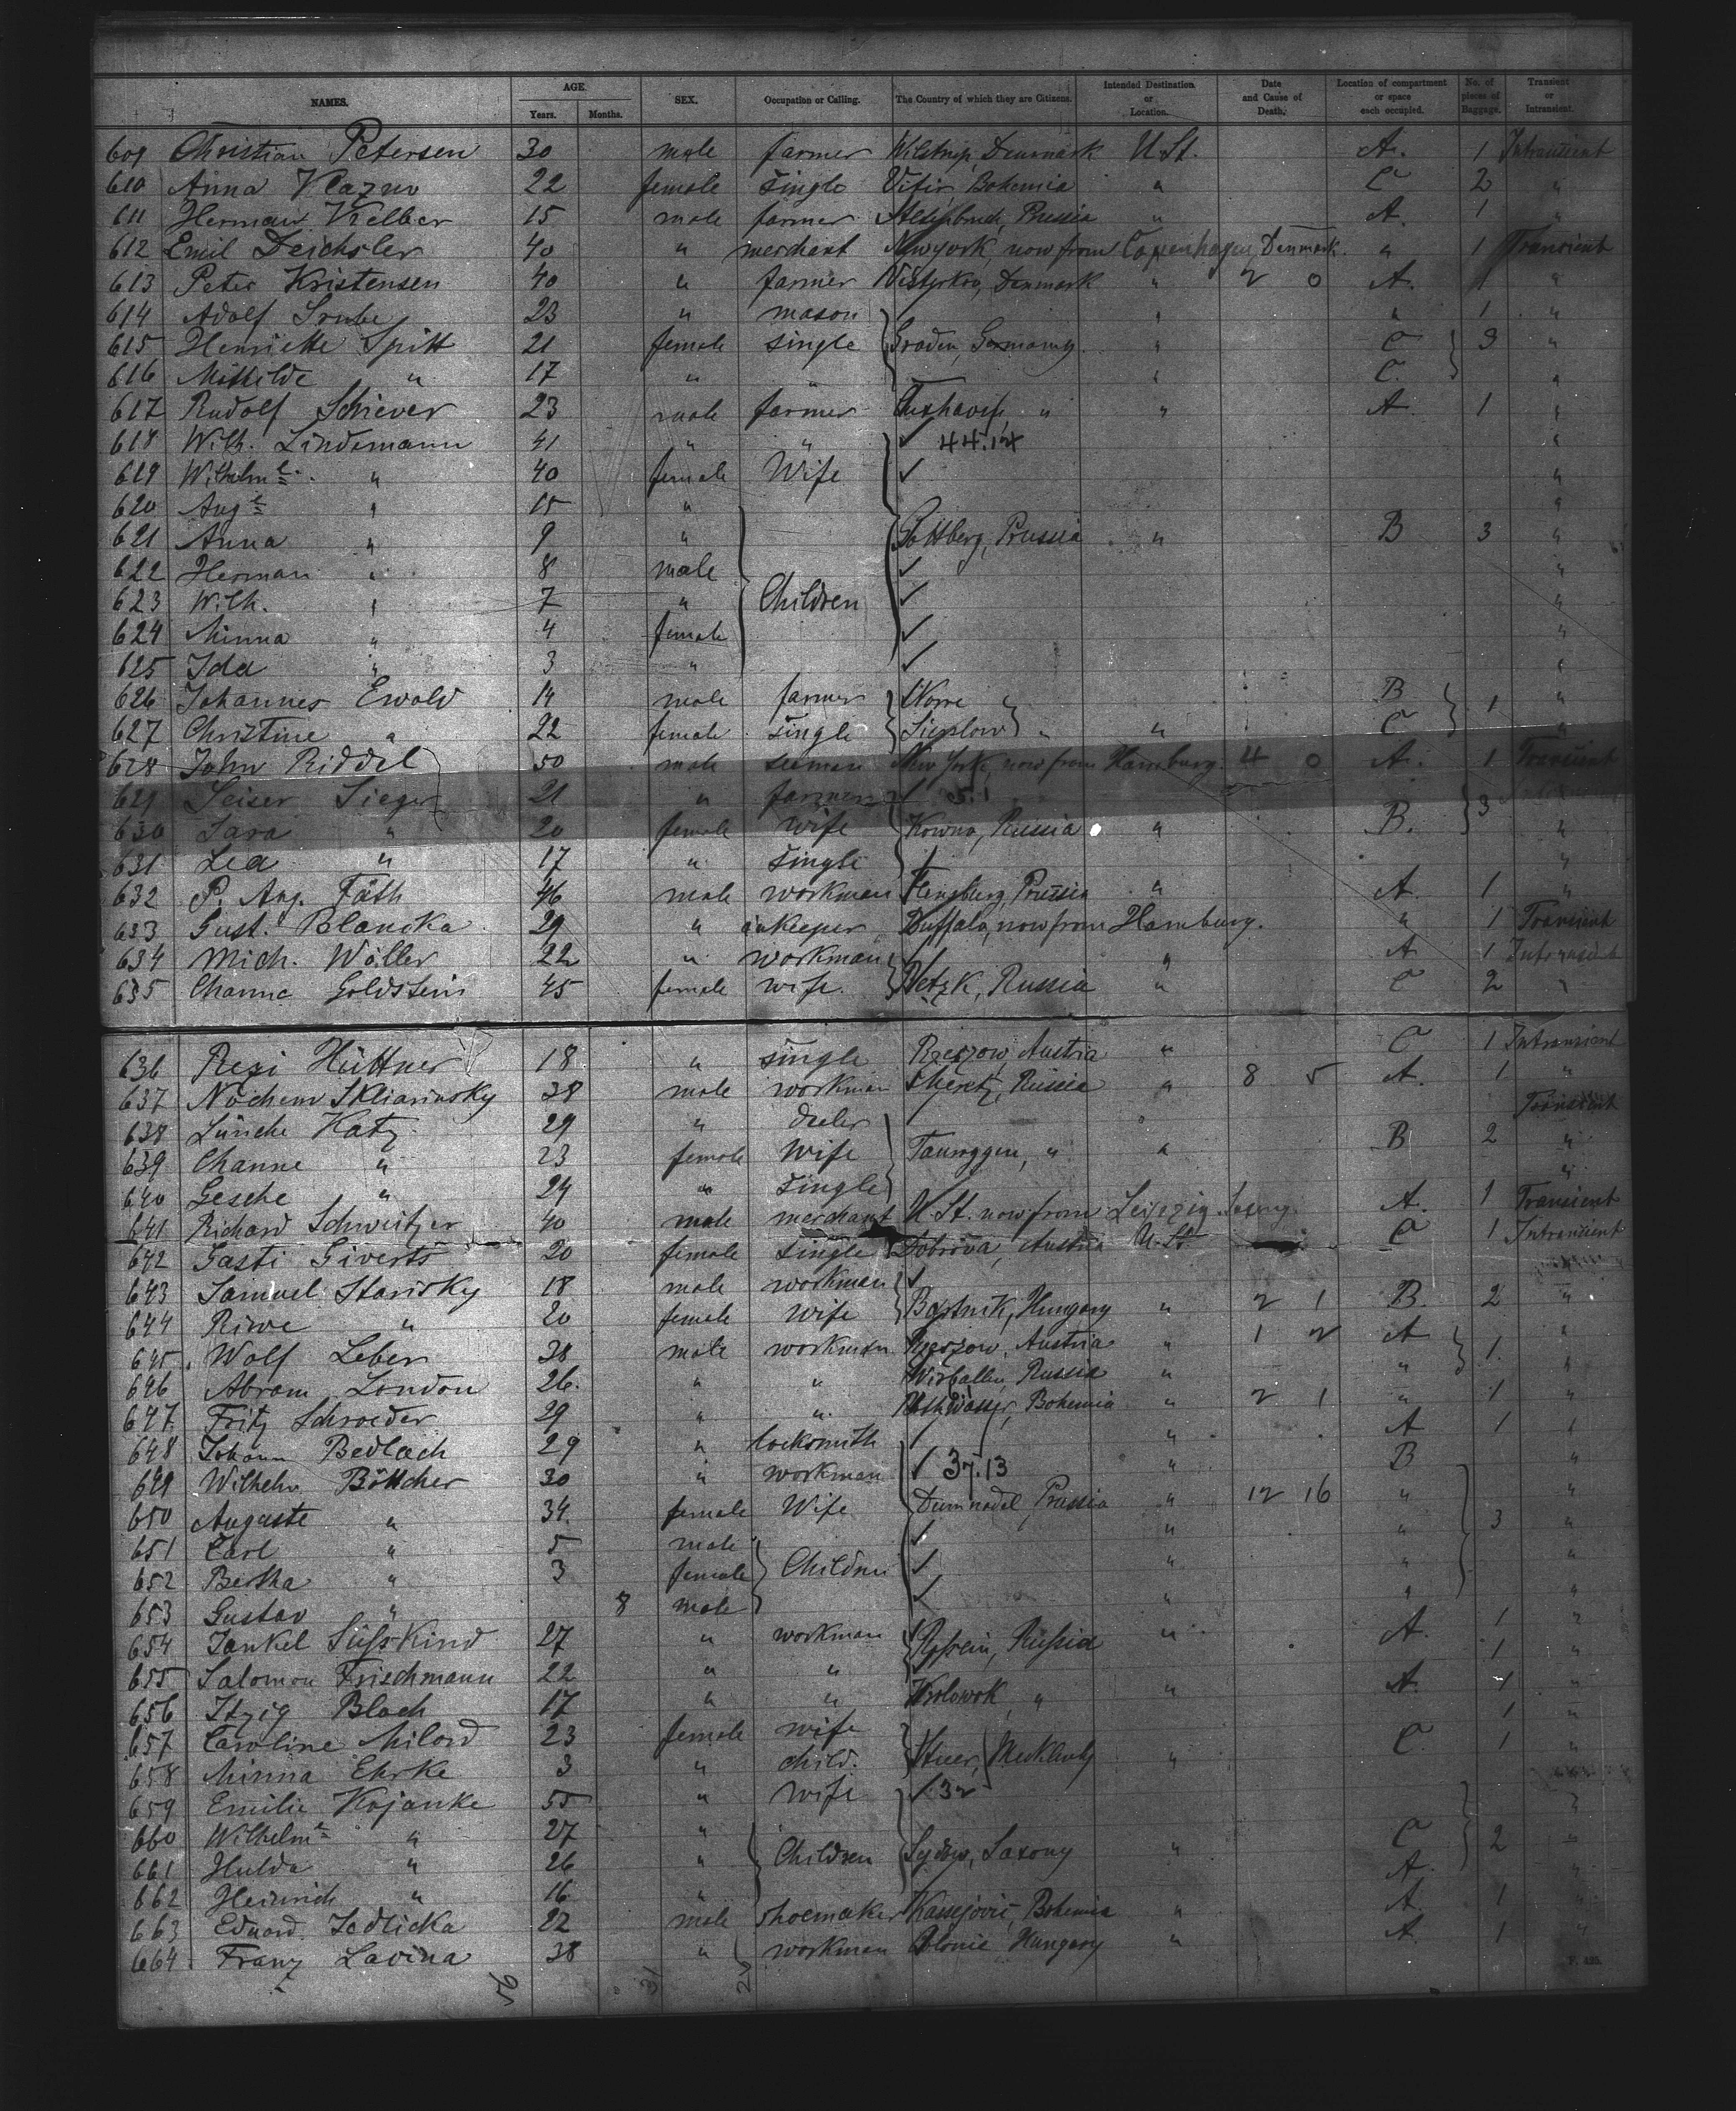 NAMES. AGE. Years. Months. SEX. Occupation or Calling. The Country of which they are Citizens. Intended Destination or Location. Date and Cause of Death. Location of compartment or space each occupied. No. of pieces of Baggage. Transient or Intransient.
609 Christian Petersen 30 male farmer Wilstrup, Denmark U. St. A. 1 Intransient
610 Anna 22 female single Bohemia " C 2 "
611 Herman Kelber 15 male farmer Prussia " A. 1 "
612 Emil Deichsler 40 " merchant Newyork, now from Copenhagen, Denmark. " 1 Transient
613 Peter Kristensen 40 " farmer Denmark " 2 0 A. 1 "
614 Adolf 23 " mason " " 1 "
615 Henriette Spitt 21 female single Graden, Germany " C 3 "
616 Mathilde " 17 " " " C. "
617 Rudolf Schiever 23 male farmer " " A 1 "
618 Wilh. Lindemann 41 " " ✓ 44.14 "
619 Wilhelme. " 40 female Wife ✓ "
620 Auge " 15 " "
621 Anna " 9 " Prussia " B 3 "
622 Herman " 8 male ✓ "
623 Wilh. " 7 " Children ✓ "
624 Minna " 4 female ✓ "
625 Ida " 3 " ✓ "
626 Johannes Ewald 14 male farmer " B 1 "
627 Christine " 22 female single " " C "
628 John Riddel 50 male seeman New York, now from Hamburg. 4 0 A. 1 Transient
629 Leiser Sieger 21 " farmer ✓ 5.1 3
630 Sara " 20 female wife Kowno, Russia " B. "
631 Lea " 17 " single ✓ "
632 P. Aug. Fäth 46 male workman Flensburg, Prussia " A. 1 "
633 Gust. Blancka 29 " inkeeper Buffalo, now from Hamburg. " 1 Transient
634 Mich. Wöller 22 " workman ✓ " A 1 Intransient
635 Channe Goldstein 45 female wife. Russia " C 2 "
636 Resi Hüttner 18 " single Rzeszow, Austria " C 1 Intransient
637 Nochem Skliarinsky 38 male workman Meretz, Russia " 8 5 A. 1 "
638 Katz 29 " dealer ✓ " Transient
639 Channe " 23 female Wife Tauroggen, " " B 2 "
640 Gesche " 24 " single "
641 Richard Schweitzer 40 male merchant U. St. now from Leipzig. A. 1 Transient
642 Gasti Giverts 20 female single Dobrova, Austria U. St C 1 Intransient
643 Samuel Starisky 18 male workman ✓
644 Riwe " 20 female wife Hungary " 2 1 B. 2 "
645 Wolf Leber 38 male workman Rzeszow, Austria " 1 2 A 1. "
646 Abram London 26. " " Wirballen, Russia " " "
647 Fritz Schroeder 29 " " Bohemia " 2 1 " 1 "
648 Johann Bedlach 29 " locksmith ✓ " A 1 "
649 Wilhelm Böttcher 30 " workman ✓ 37.13 " B "
650 Auguste " 34. female Wife Prussia " 12 16 " "
651 Carl " 5 male ✓ " " 3 "
652 Bertha " 3 female Children ✓ " "
653 Gustav " 8 male ✓ " " "
654 Jankel Süsskind 27 " workman Russia " A. 1 "
655 Salomon Frischmann 22 " " 1 "
656 Itzig Bloch 17 " " " " A. 1 "
657 Caroline Milord 23 female wife 1 "
658 Minna Ehrke 3 " child. Stuer, Mecklenbg " C. 1 "
659 Emilie Kojanke 55 " wife ✓ 32
660 Wilhelme " 27 " C 2 "
661 Hulda " 26 " Children Sydow, Saxony " A. "
662 Heinrich " 16 "
663 Eduard Jedlicka 22 male shoemaker Kassejovic, Bohemia " A. 1 "
664 Franz Lavina 38 " workman Hungary " A. 1 "
56 31